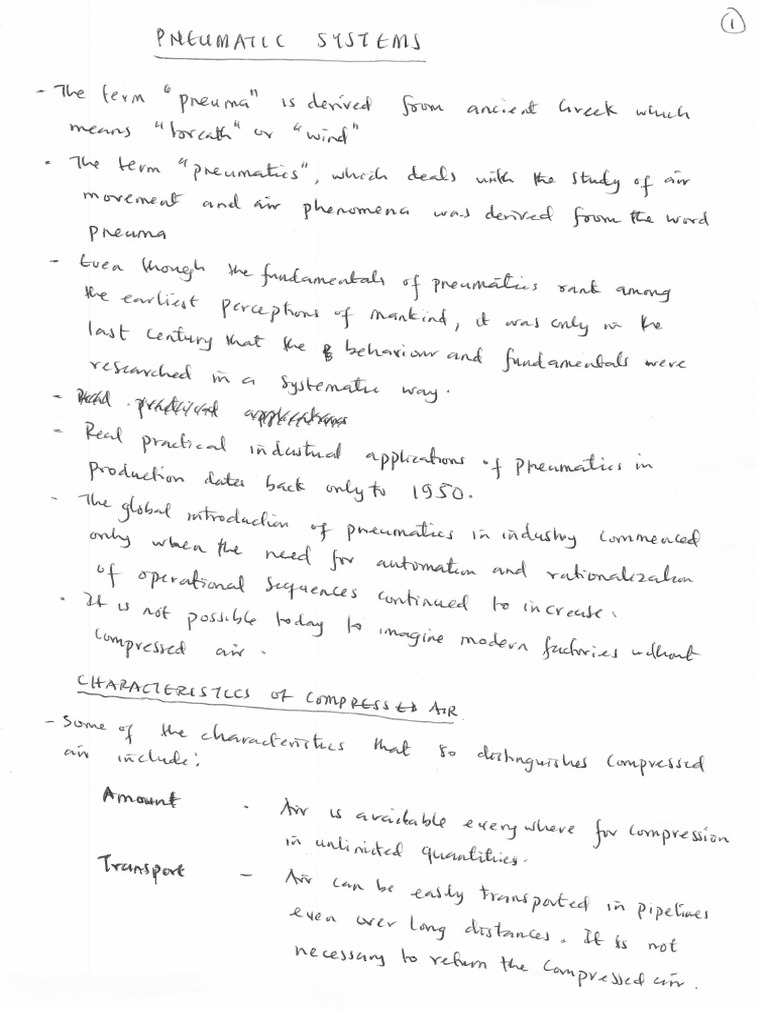 1
PNEUMATIC SYSTEMS
- The term "pneuma" is derived from ancient Greek which
means "breath" or "wind"
- The term "pneumatics", which deals with the study of air
movement and air phenomena was derived from the word
pneuma
- Even though the fundamentals of pneumatics rank among
the earliest perceptions of mankind, it was only in the
last century that the behaviour and fundamentals were
researched in a systematic way.
- Real practical applications
- Real practical industrial applications of pneumatics in
production dates back only to 1950.
- The global introduction of pneumatics in industry commenced
only when the need for automation and rationalization
of operational sequences continued to increase.
- It is not possible today to imagine modern factories without
compressed air.
CHARACTERISTICS OF COMPRESSED AIR
- Some of the characteristics that so distinguishes compressed
air include:
Amount - Air is available everywhere for compression
in unlimited quantities.
Transport - Air can be easily transported in pipelines
even over long distances. It is not
necessary to return the compressed air.